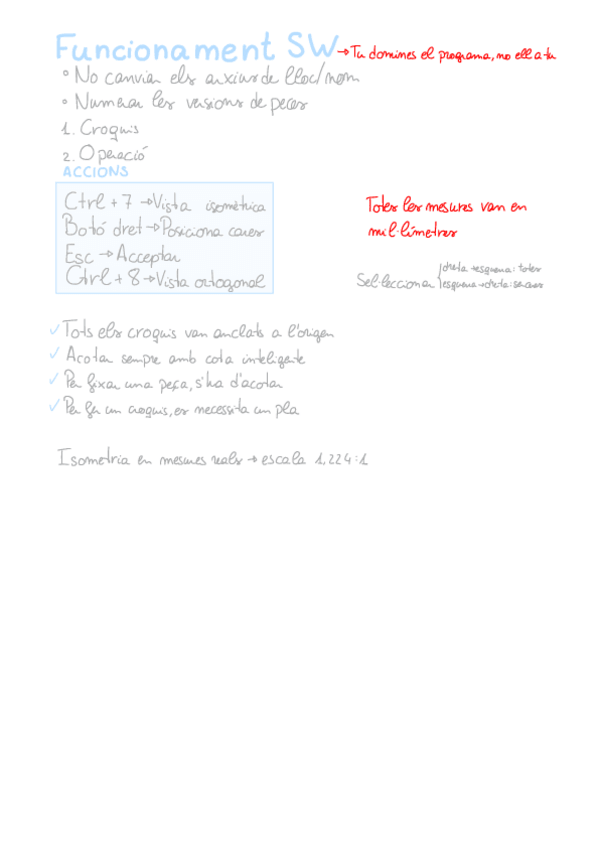 Funcionament SW → Tu domines el programa, no ell a tu
° No canviar els arxius de lloc/nom
° Numerar les versions de peces
1. Croquis
2. Operació
ACCIONS
Ctrl + 7 → Vista isomètrica
Botó dret → Posiciona cares
Esc → Acceptar
Ctrl + 8 → Vista ortogonal
Totes les mesures van en
mil·límetres
Sel·leccionar { dreta → esquerra: totes
esquerra → dreta: senceres
✓ Tots els croquis van anclats a l'origen
✓ Acotar sempre amb cota inteligente
✓ Per fixar una peça, s'ha d'acotar
✓ Per fer un croquis, es necessita un pla
Isometria en mesures reals → escala 1,224:1